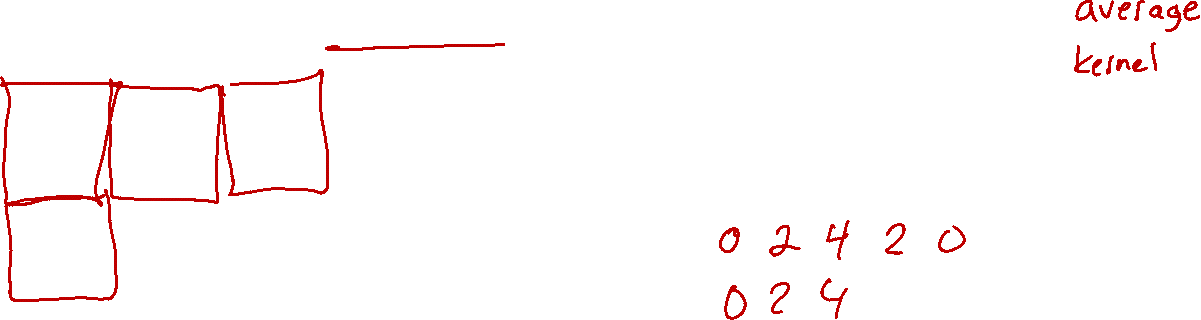 average
kernel
0 2 4 2 0
0 2 4